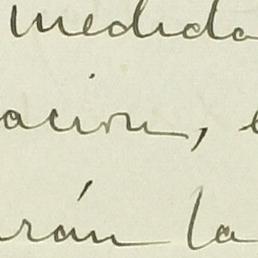 medida
ación,
rán la